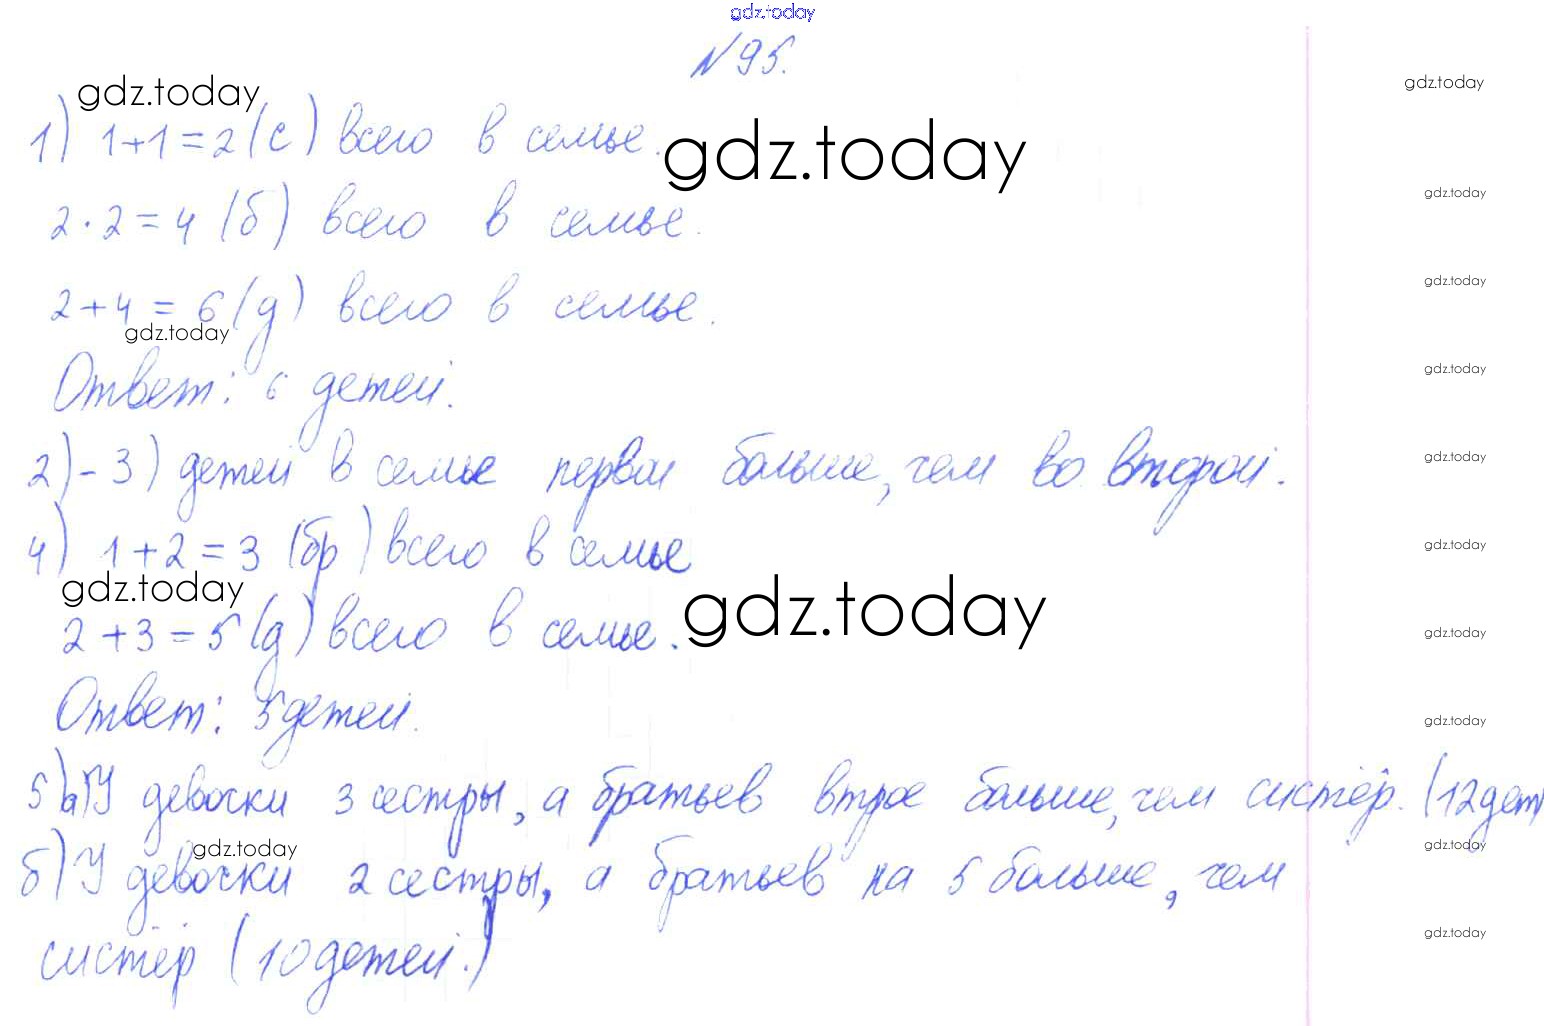 gdz.today
№95.
gdz.today
gdz.today
1) 1+1=2(с) всего в семье.
gdz.today
2·2=4 (б) всего в семье.
gdz.today
2+4=6(д) всего в семье.
gdz.today
gdz.today
Ответ: 6 детей.
gdz.today
2)-3) детей в семье первой больше, чем во второй.
gdz.today
4) 1+2=3 (бр) всего в семье
gdz.today
gdz.today
gdz.today
2+3=5(д) всего в семье.
gdz.today
Ответ: 5детей.
gdz.today
5) а) У девочки 3 сестры, а братьев втрое больше, чем систёр. (12дет
gdz.today
gdz.today
б) У девочки 2 сестры, а братьев на 5 больше, чем
систёр (10детей.)
gdz.today